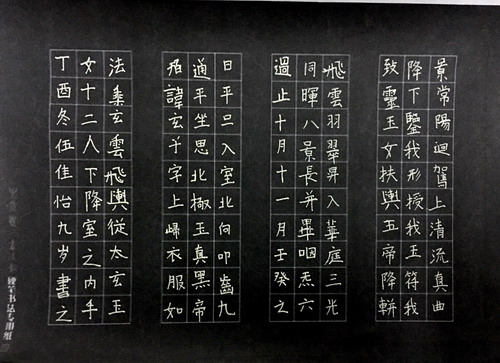 景常陽迴駕上清流真曲
降下鑒我形授我玉符我
致靈玉女扶輿五帝降軿
飛雲羽翠昇入華庭三光
同暉八景長并畢咽炁六
過止十月十一月壬癸之
日平旦入室北向叩齒九
通平坐思北極玉真黑帝
君諱玄子字上歸衣服如
法乘玄雲飛輿從太玄玉
女十二人下降室之内手
丁酉冬伍佳怡九岁書之